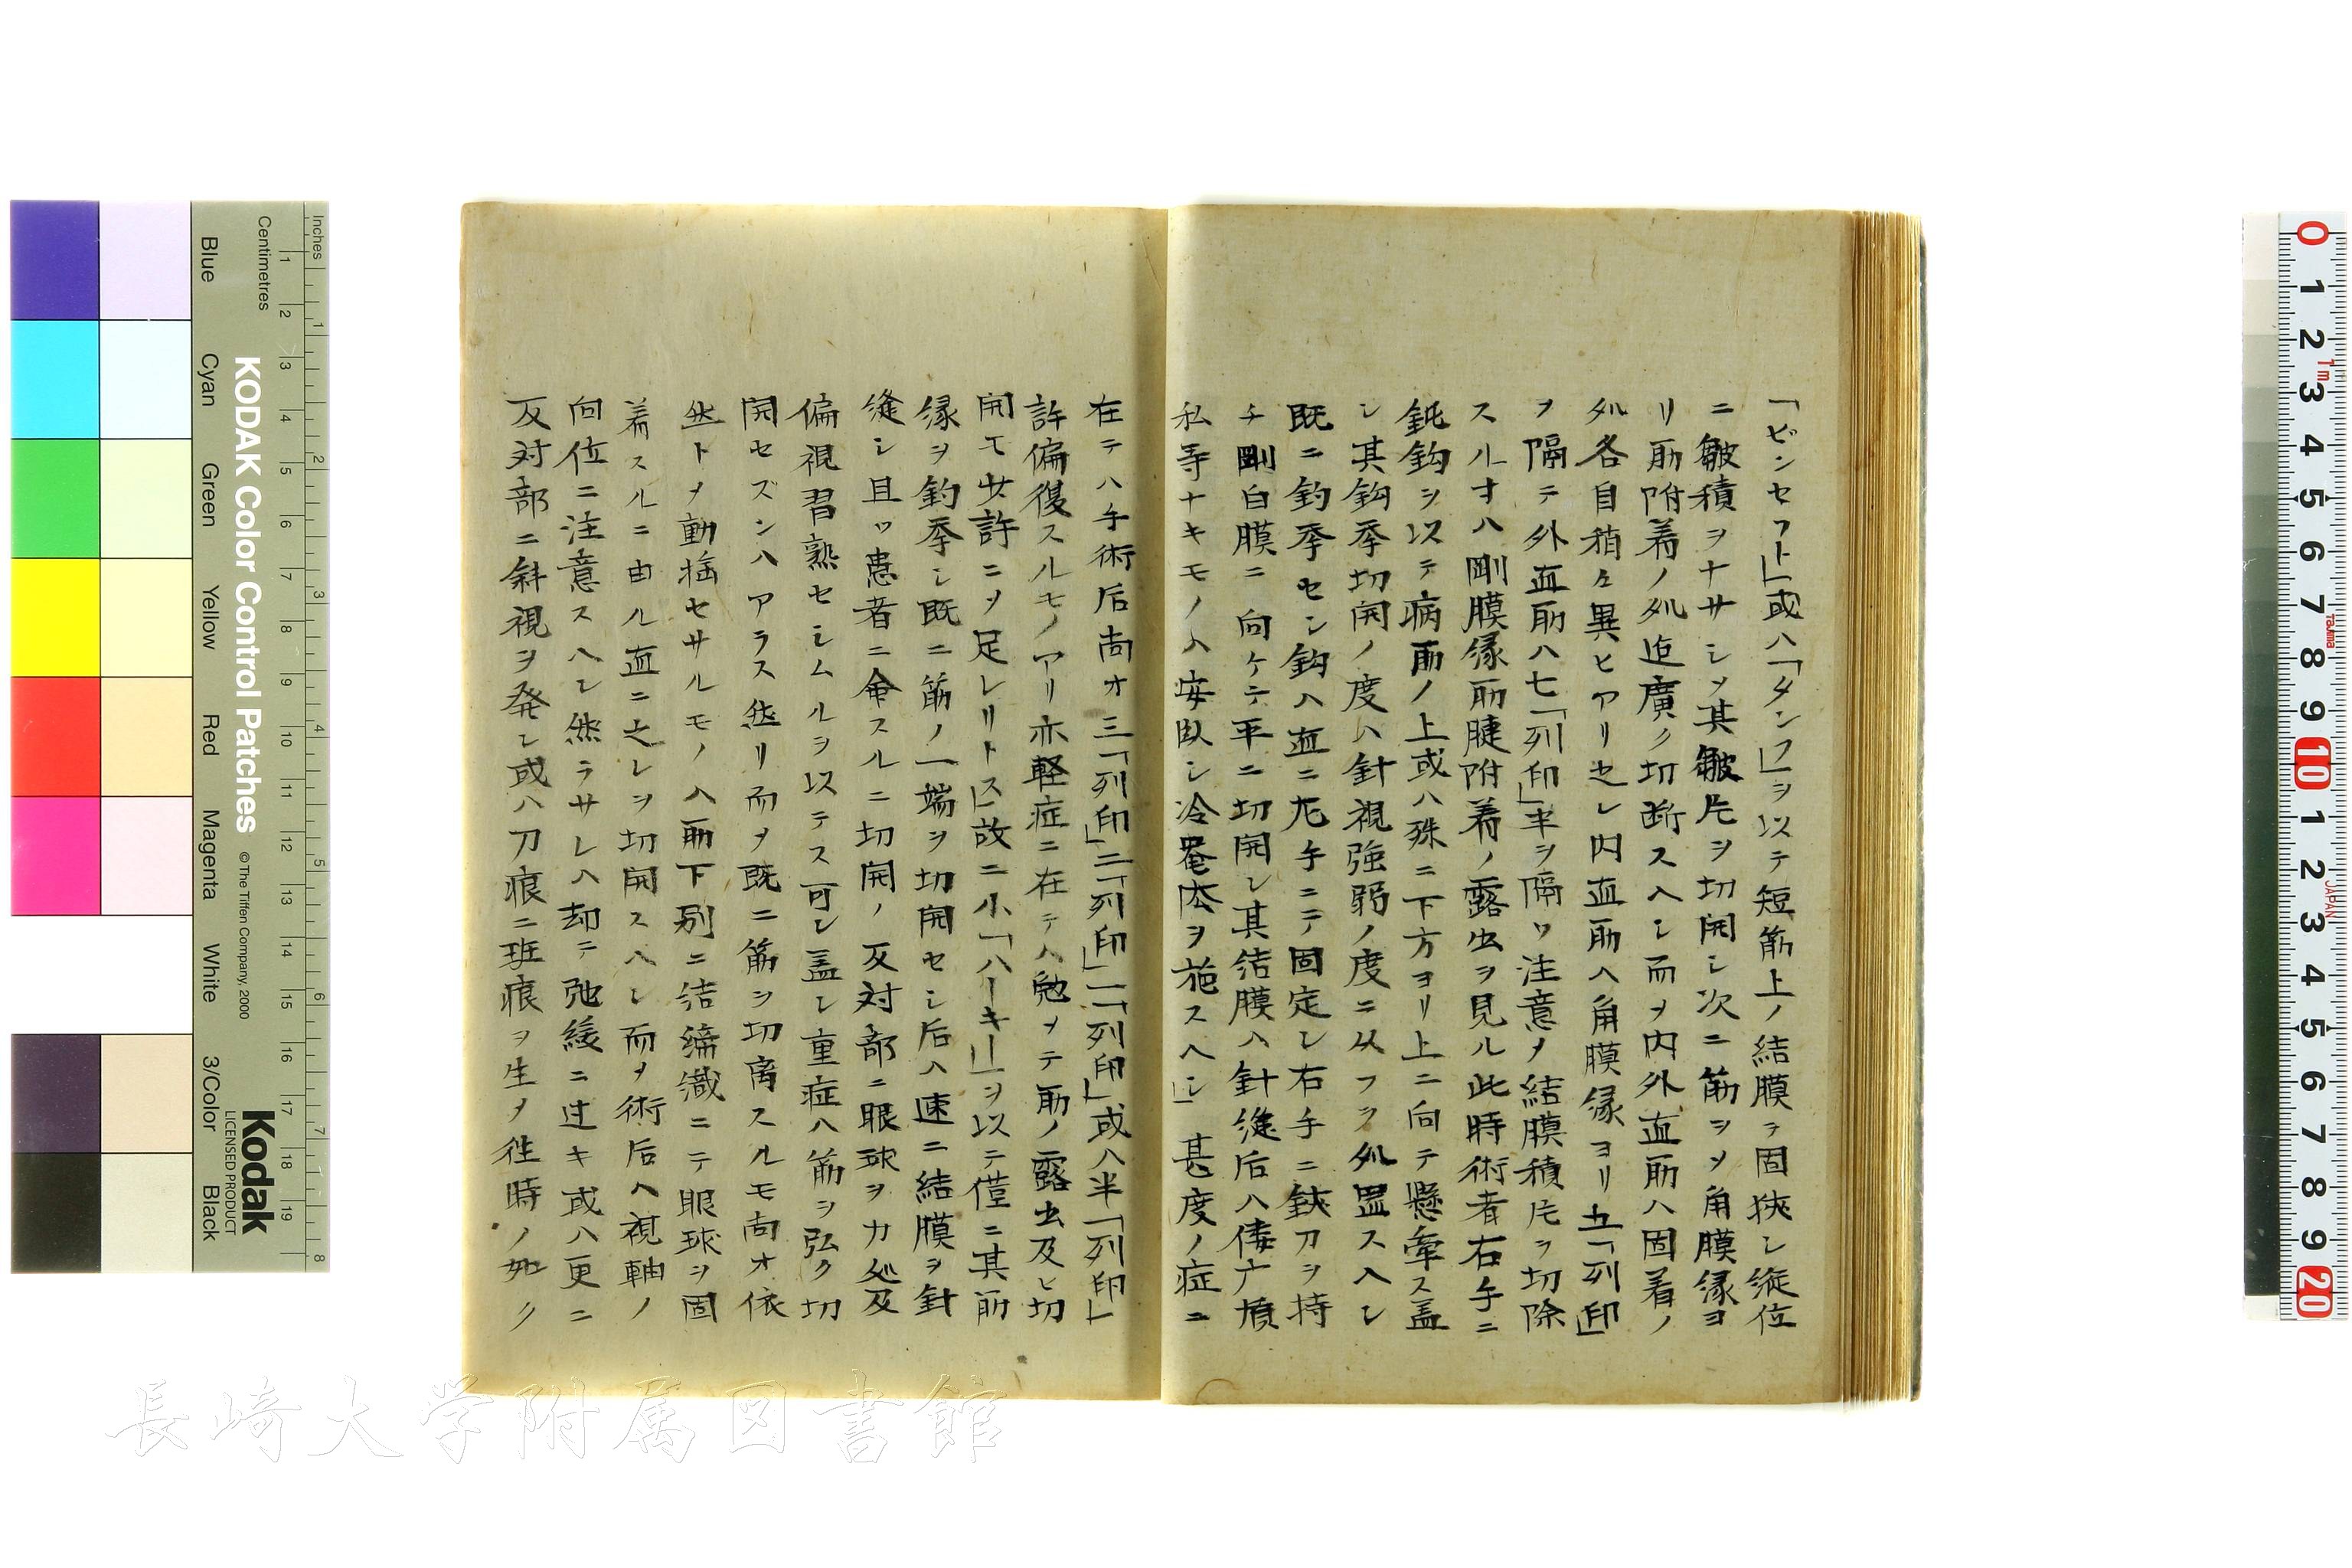 「ピンセフト」或ハ「タンフ」ヲ以テ短筋上ノ結膜ヲ固狹シ縦位
ニ皺積ヲナサシメ其皺片ヲ切開シ次ニ筋ヲメ角膜縁ヨ
リ筋附着ノ処迠廣ク切断スヘシ而メ内外直筋ハ固着ノ
処各自稍々異ヒアリ之レ内直筋ハ角膜縁ヨリ五「列印」
ヲ隔テ外直筋ハ七「列印」半ヲ隔ツ注意メ結膜積片ヲ切除
スルオハ剛膜縁筋腱附着ノ露出ヲ見ル此時術者右手ニ
鈍鈎ヲ以テ病筋ノ上或ハ殊ニ下方ヨリ上ニ向テ懸牽ス蓋
シ其鈎牽切開ノ度ハ針視強弱ノ度ニ从フヲ処置スヘシ
既ニ釣牽セシ鈎ハ直ニ左手ニテ固定シ右手ニ鋏刀ヲ持
チ剛白膜ニ向ケテ平ニ切開シ其結膜ハ針縫后ハ倭广
私等ナキモノハ安臥シ冷罨法ヲ施スヘシ」甚度ノ症ニ
在テハ手術后尚オ三「列印」二「列印」一「列印」或ハ半「列印」
許偏復スルモノアリ亦軽症ニ在テハ勉メテ筋ノ露出及ヒ切
開モ少許ニメ足レリトス」故ニ小「ハーキー」ヲ以テ僅ニ其筋
縁ヲ釣牽シ既ニ筋ノ一端ヲ切開セシ后ハ速ニ結膜ヲ針
縫シ且ツ患者ニ命スルニ切開ノ反対部ニ眼球ヲカ処及
偏視習熟セシムルヲ以テス可シ蓋シ重症ハ筋ヲ弘ク切
開セズンハアラス然リ而メ既ニ筋ヲ切离スルモ尚オ依
然トメ動揺セサルモノハ筋下別ニ結締織ニテ眼球ヲ固
着スルニ由ル直ニ之レヲ切開スヘシ而メ術后ハ視軸ノ
向位ニ注意スヘシ然ラサレハ却テ弛緩ニ过キ或ハ更ニ
反対部ニ斜視ヲ発シ或ハ刀痕ニ班痕ヲ生メ徃時ノ如ク
Inches
Centimetres
KODAK Color Control Patches
© The Tiffen Company, 2000
Kodak
LICENSED PRODUCT
Blue
Cyan
Green
Yellow
Red
Magenta
White
3/Color
Black
1 2 3 4 5 6 7 8 9 10 11 12 13 14 15 16 17 18 19
1 2 3 4 5 6 7 8
0 1 2 3 4 5 6 7 8 9 10 1 2 3 4 5 6 7 8 9 20
1m
Tajima
JAPAN
長崎大学附属図書館